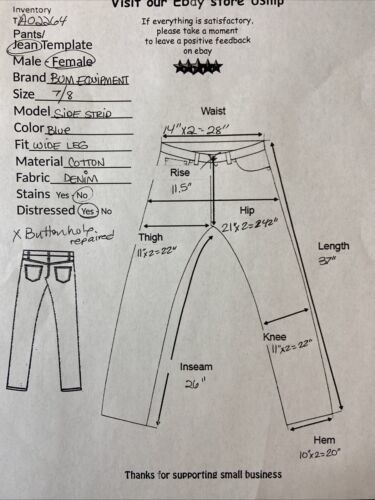 Visit our EBay store USmp
Inventory
TA02264
If everything is satisfactory,
please take a moment
to leave a positive feedback
on ebay
Pants/
Jean Template
Male - Female
Brand BUM EQUIPMENT
Size 7/8
Model SIDE STRIP
Color Blue
Fit WIDE LEG
Material COTTON
Fabric DENIM
Stains Yes No
Distressed Yes No
X Buttonhole
repaired
Waist
14"x2=28"
Rise
11.5"
Hip
21"x2=42"
Thigh
11"x2=22"
Length
37"
Knee
11"x2=22"
Inseam
26"
Hem
10"x2=20"
Thanks for supporting small business